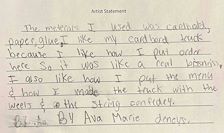 Artist Statement
The materials I used was cardbold,
paper, glue, I like my cardbord truck
because I like how I put order
here so it was like a real bissniss,
I also like how I put the menu
& how I made the truck with the
weels & the string confedery.
By Ava Marie deneys.